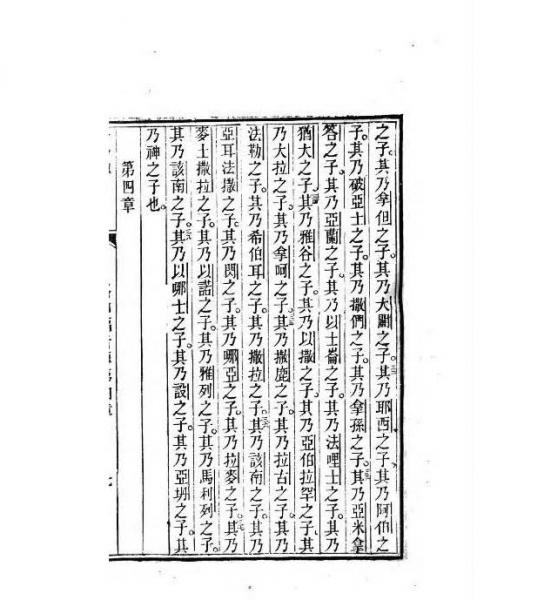 之子其乃拿但之子其乃大闢之子其乃耶西之子其乃阿伯之
子其乃破亞士之子其乃撒們之子其乃拿孫之子其乃亞米拿
答之子其乃亞蘭之子其乃以士崙之子其乃法哩士之子其乃
猶大之子其乃雅谷之子其乃以撒之子其乃亞伯拉罕之子其
乃大拉之子其乃拿呵之子其乃撒鹿之子其乃拉古之子其乃
法勒之子其乃希伯耳之子其乃撒拉之子其乃該南之子其乃
亞耳法撒之子其乃閃之子其乃哪亞之子其乃拉麥之子其乃
麥士撒拉之子其乃以諾之子其乃雅列之子其乃馬利列之子
其乃該南之子其乃以哪士之子其乃設之子其乃亞坍之子其
乃神之子也
第四章